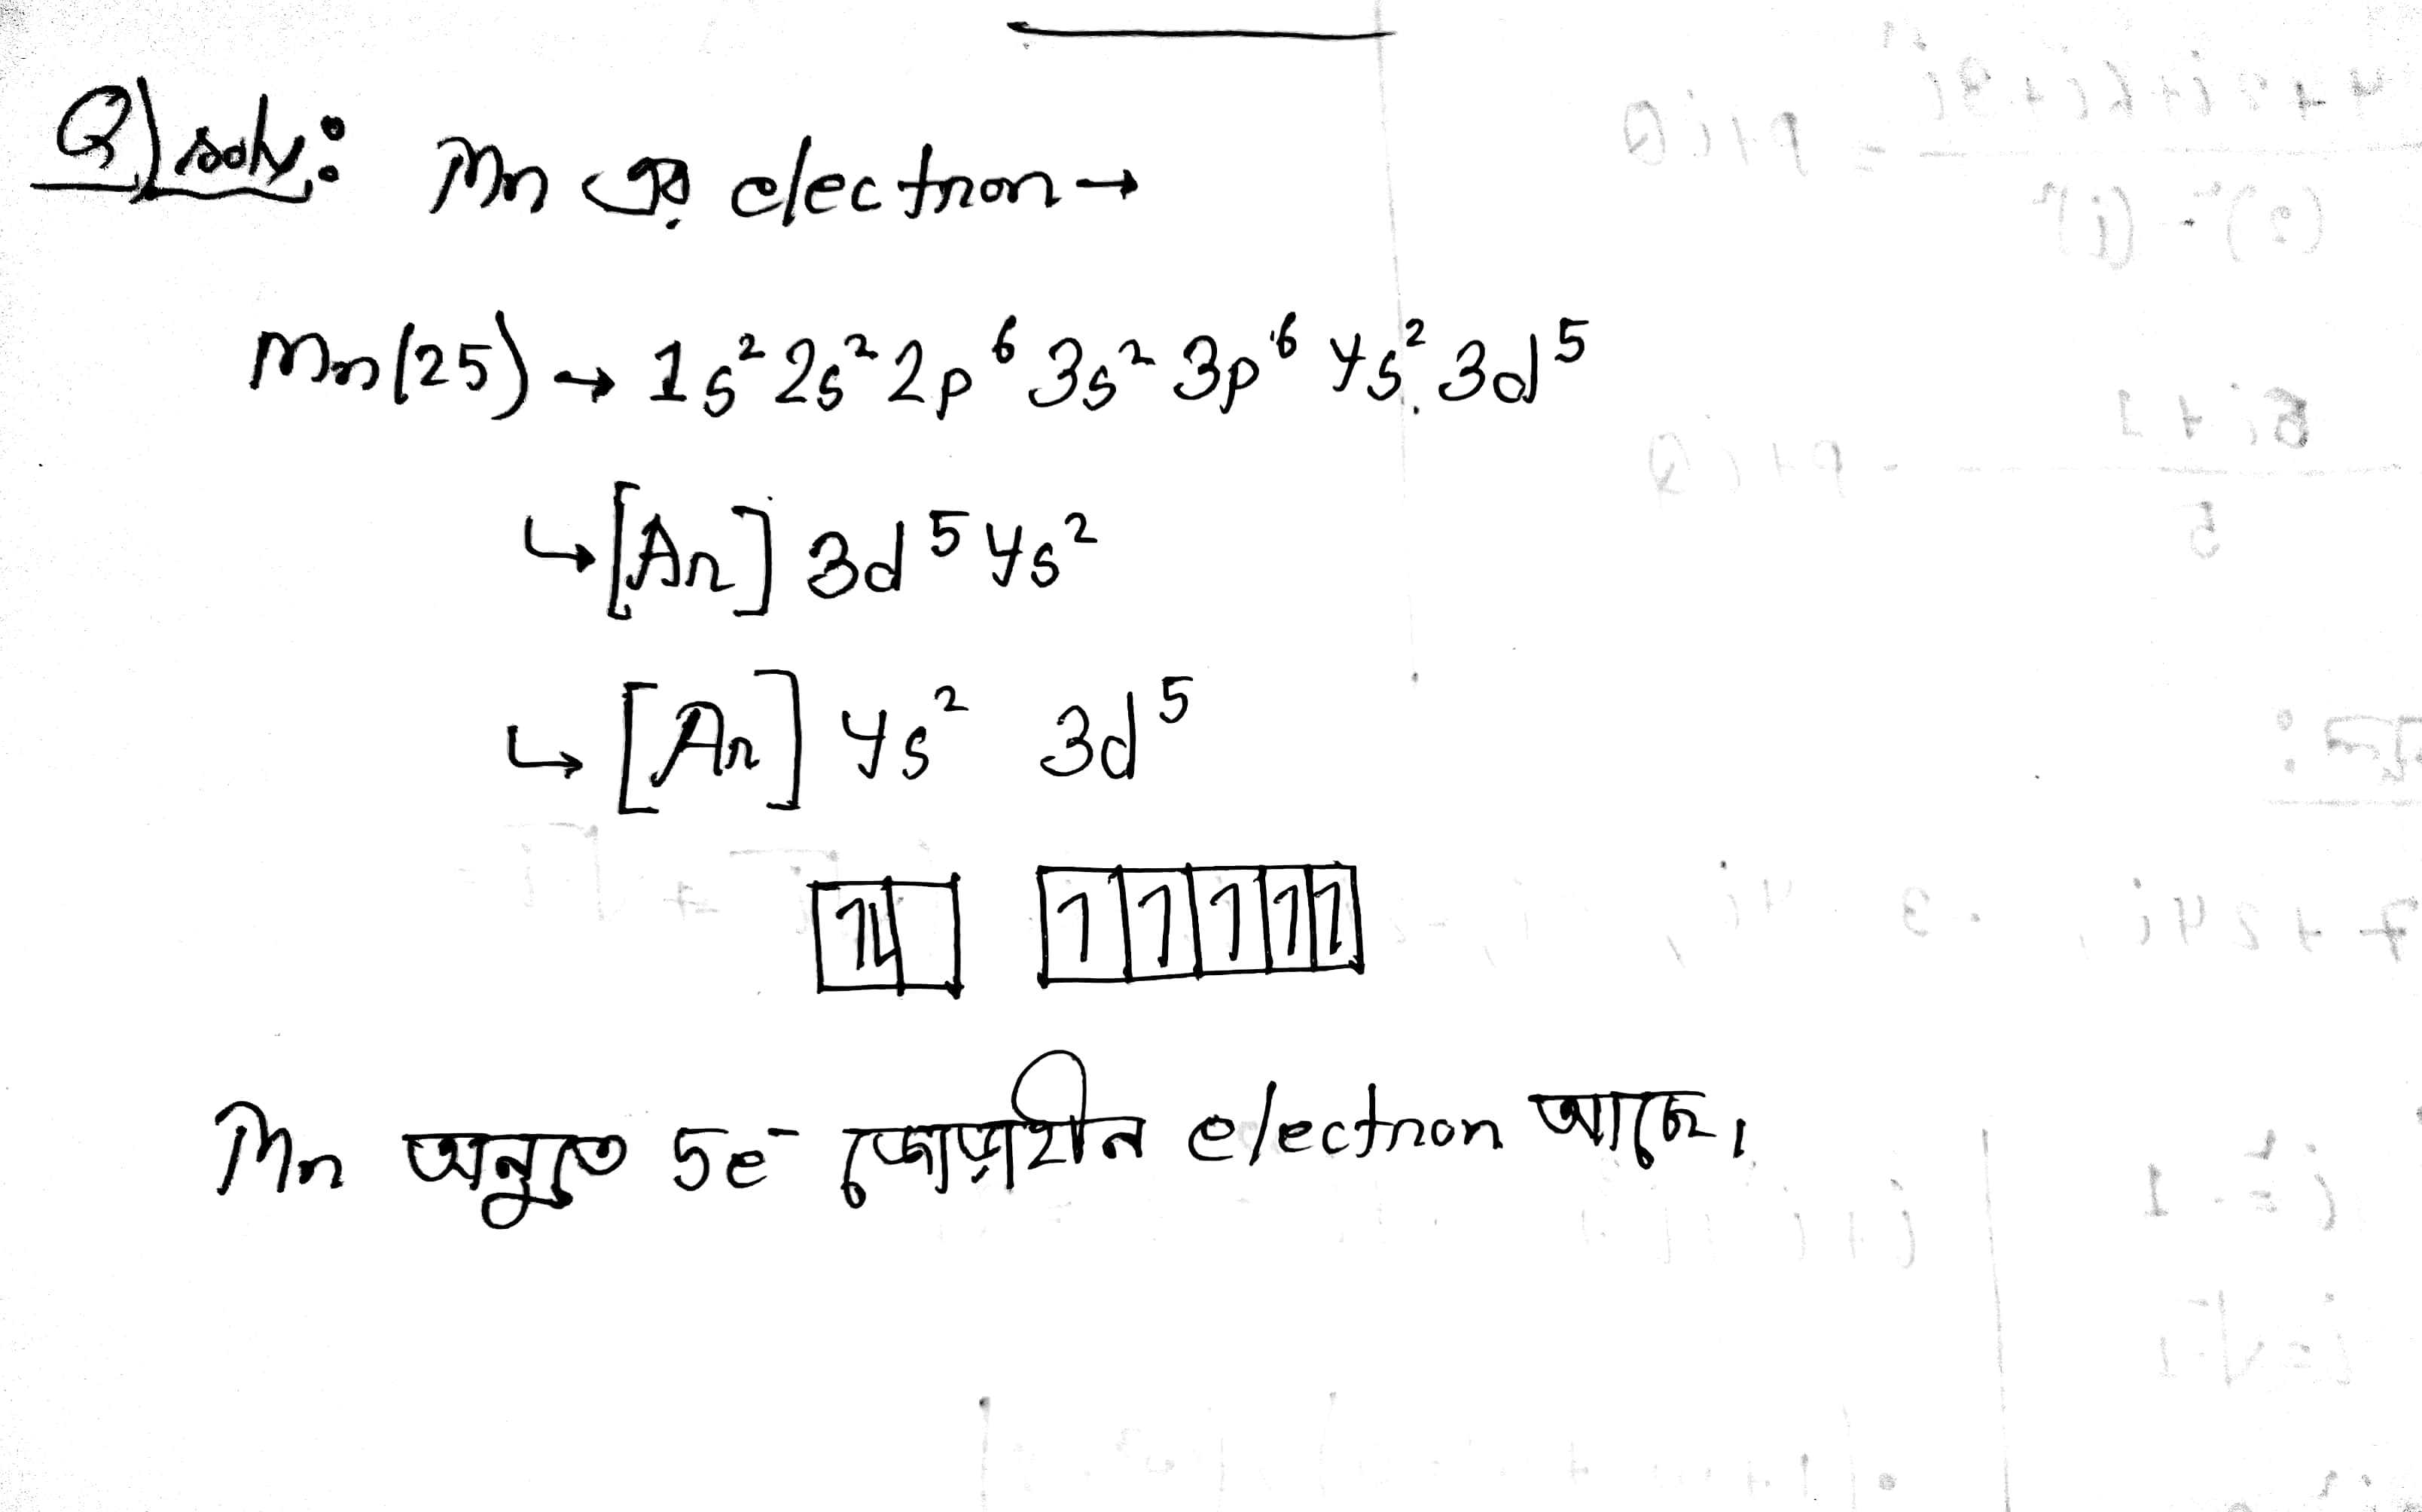 Q) solv: Mn এর electron →
Mn(25) → 1s² 2s² 2p⁶ 3s² 3p⁶ 4s² 3d⁵
↳ [Ar] 3d⁵ 4s²
↳ [Ar] 4s² 3d⁵
1L 1 1 1 1 1
Mn অনুতে 5e⁻ জোড়াহীন electron আছে।